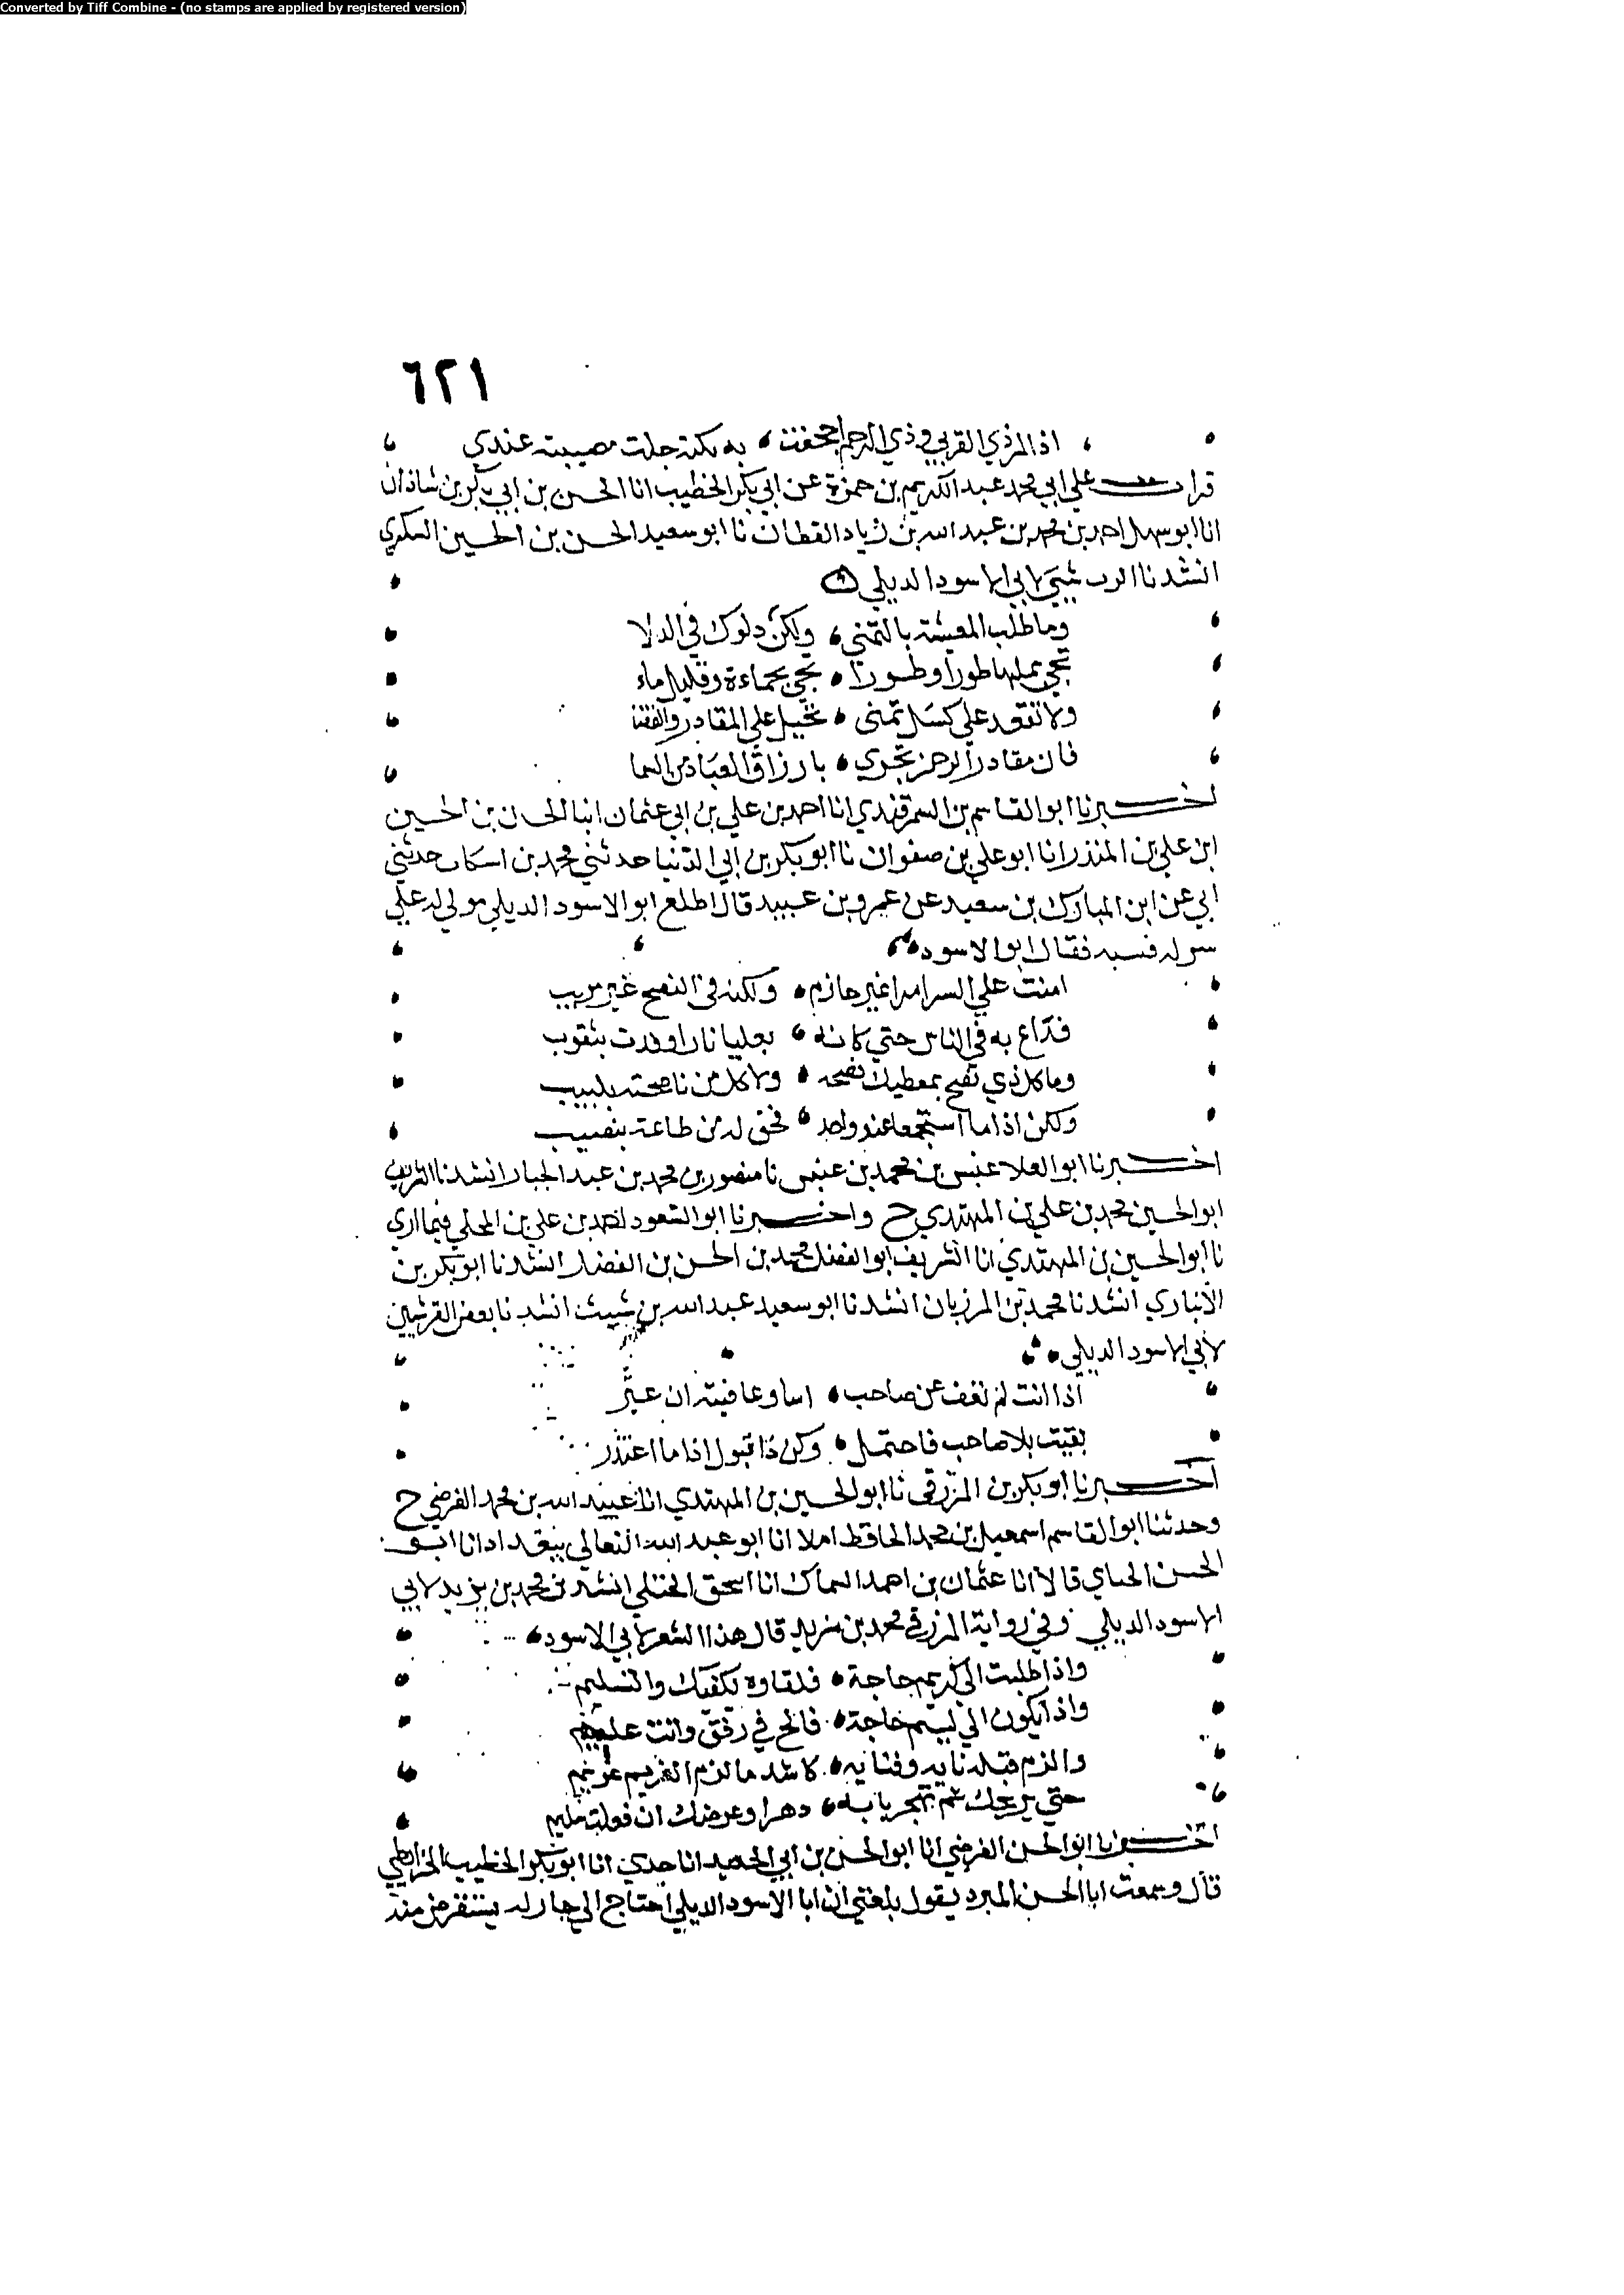 Converted by Tiff Combine - (no stamps are applied by registered version)
٦٢١
اذا المر ذي القربي وذي الرحم اجحفت به نكبة جلت مصيبته عندي
قرات علي ابي محمد عبد الكريم بن حمزة عن ابي بكر الخطيب انا الحسن بن ابي بكر بن شاذان
انا ابو سهل احمد بن محمد بن عبد الله بن زياد القطان نا ابو سعيد الحسن بن الحسين السكري
انشدنا الرياشي لابي الاسود الديلي
وما طلب المعيشة بالتمني ولكن دلوك في الدلا
تجي بملئها طورا وطورا تجي بحماءة وقليل ماء
ولا تقعد علي كسل تمنى تحيل علي المقادر والقضا
فان مقادر الرحمن تجري بارزاق العباد من السما
اخبرنا ابو القاسم بن السمرقندي انا احمد بن علي بن ابي عثمان انبا الحسن بن الحسين
ابن علي بن المنذر انا ابو علي بن صفوان نا ابو بكر بن ابي الدنيا حدثني محمد بن اسكاب حدثني
ابي عن ابن المبارك بن سعيد عن عمرو بن عبيد قال اطلع ابو الاسود الديلي مولي له علي
سر له فبثه فقال ابو الاسود
امنت علي السر امرا غير حازم ولكنه في النصح غير مريب
فذاع به في الناس حتي كانه بعليا نار اوقدت بثقوب
وما كل ذي نصح بمعطيك نصحه ولا كل من ناصحته بلبيب
ولكن اذا ما استجمعا عند واحد فحق له من طاعة بنصيب
اخبرنا ابو العلا عنبس بن محمد بن عنبس نا منصور بن محمد بن عبد الجبار انشدنا الشريف
ابو الحسين محمد بن علي بن المهتدي ح واخبرنا ابو السعود احمد بن علي بن المجلي فيما اري
نا ابو الحسين بن المهتدي انا الشريف ابو الفضل محمد بن الحسن بن الفضل انشدنا ابو بكر بن
الانباري انشدنا محمد بن المرزبان انشدنا ابو سعيد عبد الله بن شبيب انشدنا بعض القرشيين
لابي الاسود الديلي
اذا انت لم تعف عن صاحب اسا وعاقبته ان عثر
بقيت بلا صاحب فاحتمل وكن ذا قبول اذا ما اعتذر
اخبرنا ابو بكر بن المزرقي نا ابو الحسين بن المهتدي انا عبيد الله بن محمد الفرضي ح
وحدثنا ابو القاسم اسمعيل بن محمد الحافظ املا انا ابو عبد الله النعالي ببغداد انا ابو
الحسن الحناي قالا انا عثمان بن احمد السماك انا اسحق الختلي انشدني محمد بن يزيد لابي
الاسود الديلي وفي رواية المزرقي محمد بن مزيد قال هذا الشعر لابي الاسود
واذا طلبت الي كريم حاجة فلقاوه يكفيك والتسليم
واذا يكون الي لييم حاجة فالح في رفق وانت
والزم قبالة بابه وفنايه كاشد ما لزم الغريم غريم
حتي يريحك ثم تهجر بابه دهرا وعرضك ان فعلت سليم
اخبرنا ابو الحسن الفرضي انا ابو الحسن بن ابي الحديد انا جدي انا ابو بكر الخطيب الخرايطي
قال وسمعت ابا الحسن المبرد يقول بلغني ان ابا الاسود الديلي احتاج الي جار له يستقرض منه